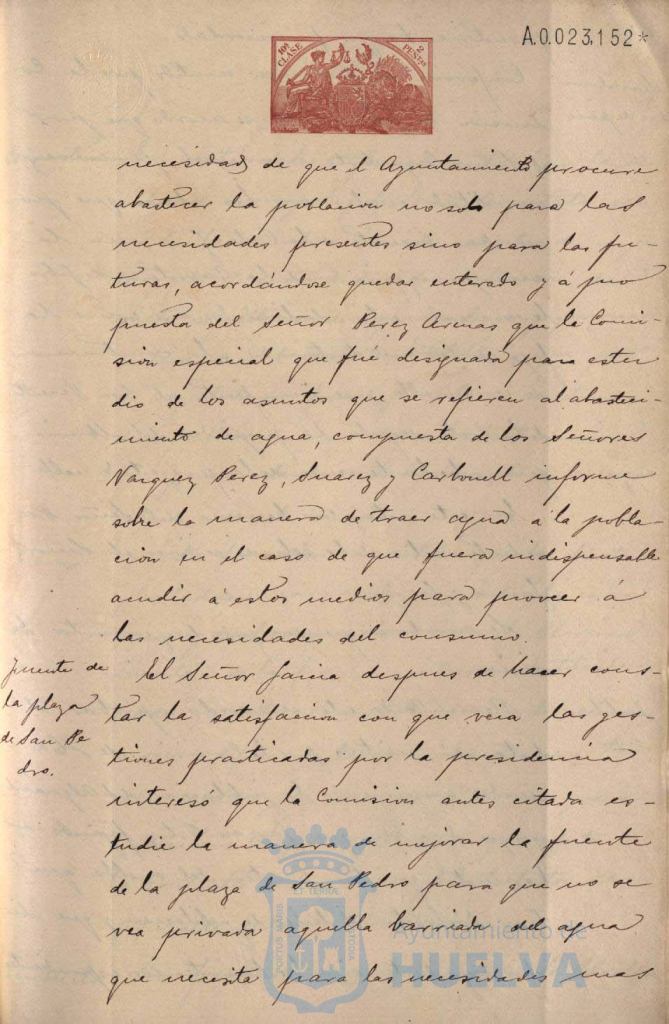 A.0.023,152*
10ª CLASE
2 PESETAS
necesidad de que el Ayuntamiento procure
abastecer la poblacion no solo para las
necesidades presentes sino para las fu-
turas, acordándose quedar enterado y á pro
puesta del Señor Perez Armas que la Comi-
sion especial que fué designada para estu
dio de los asuntos que se refieren al abasteci-
miento de agua, compuesta de los Señores
Vazquez Perez, Suarez y Carbonell informe
sobre la manera de traer agua á la pobla-
cion en el caso de que fuera indispensable
acudir á estos medios para proveer á
las necesidades del consumo.
Fuente de
la plaza
de San Pe
dro.
El Señor Garcia despues de hacer cons-
tar la satisfacion con que veia las ges-
tiones practicadas por la presidencia
interesó que la Comision antes citada es-
tudie la manera de mejorar la fuente
de la plaza de San Pedro para que no se
vea privada aquella barriada del agua
que necesita para las necesidades mas
PORTUS MARIS ET TERRAE CUSTODIA
Ayuntamiento de
HUELVA